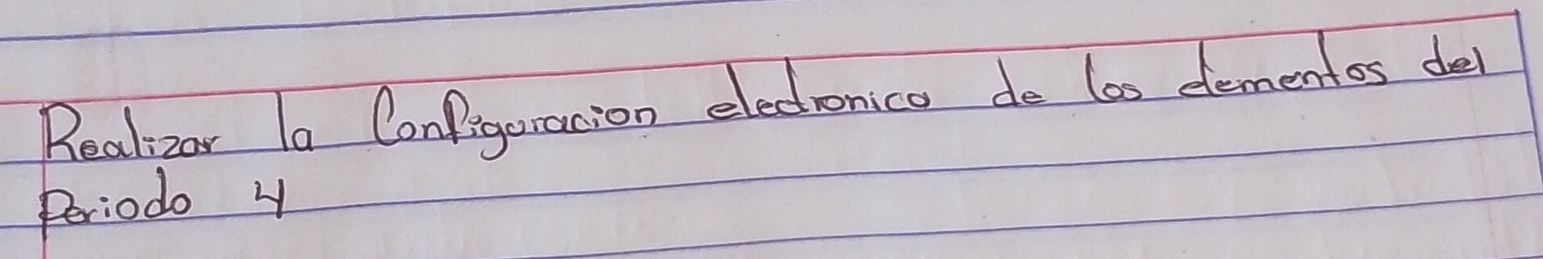 Realizar la Configuracion electronica de los elementos del
Periodo 4